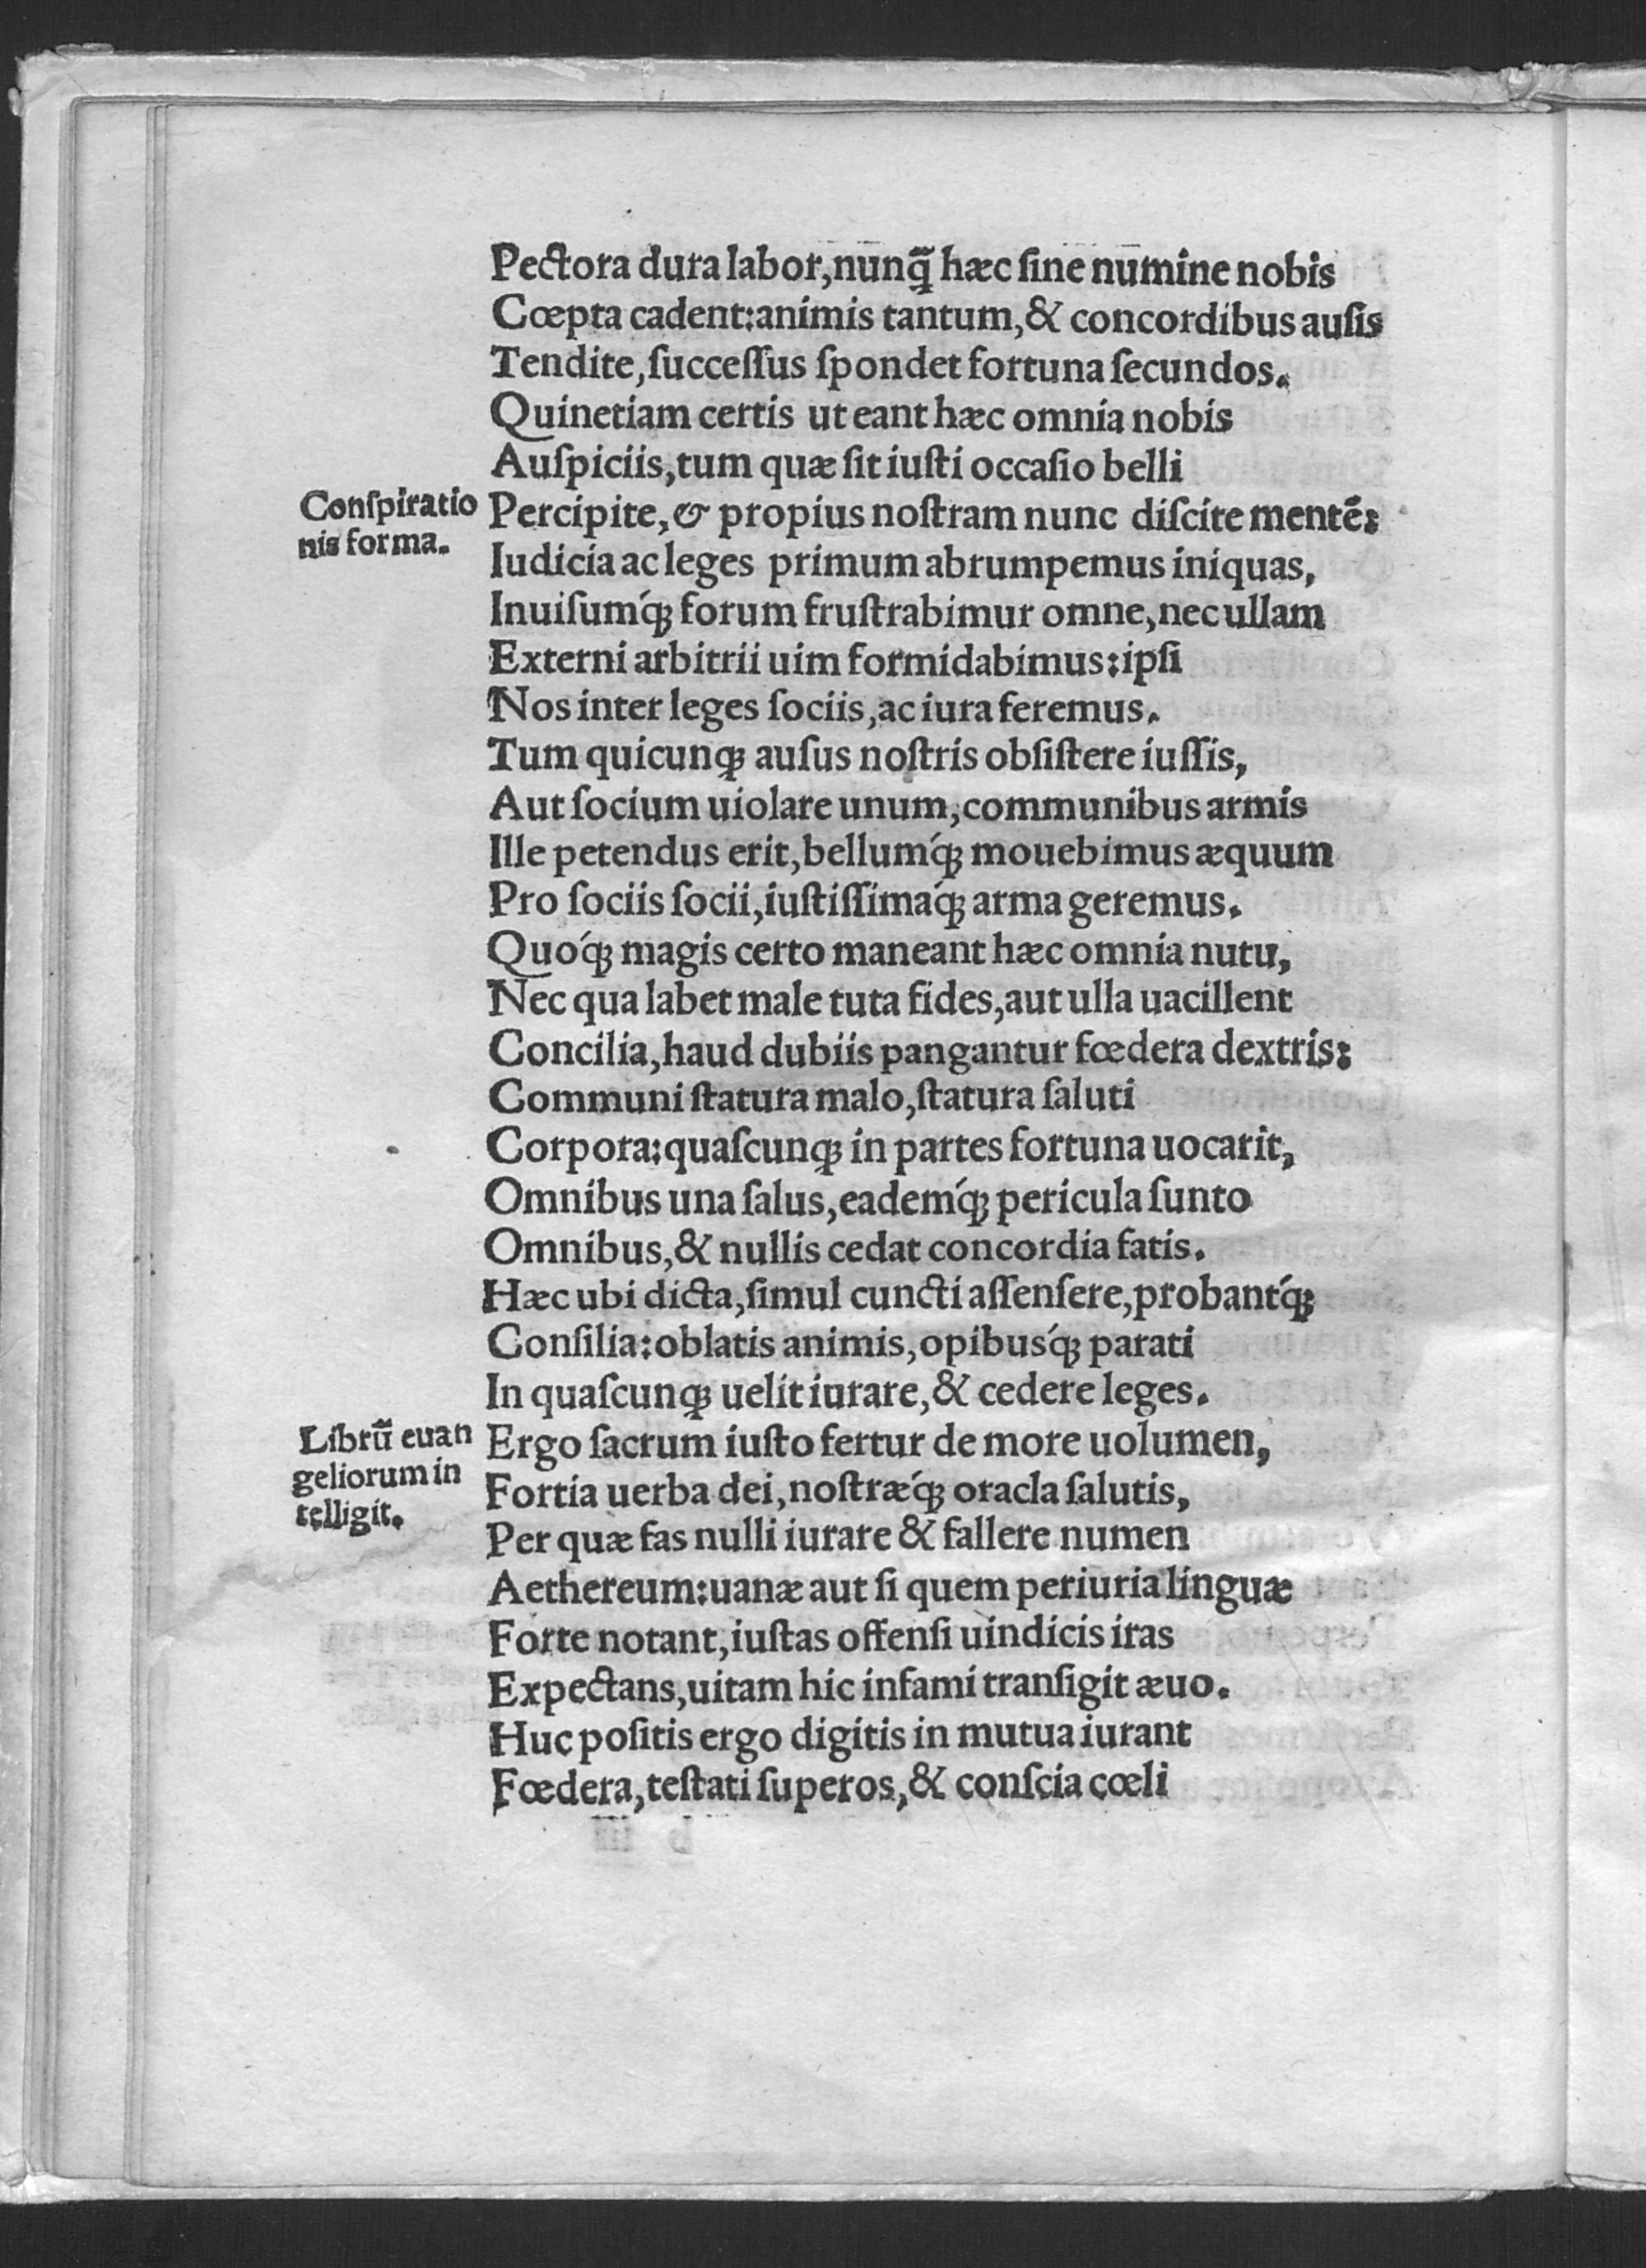 Pectora dura labor,nunq̃ hæc ſine numine nobis
Cœpta cadent:animis tantum,& concordibus auſis
Tendite,ſucceſſus ſpondet fortuna ſecundos.
Quinetiam certis ut eant hæc omnia nobis
Auſpiciis,tum quæ ſit iuſti occaſio belli
Conſpiratio
nis forma.
Percipite,& propius noſtram nunc diſcite mentē:
Iudicia ac leges primum abrumpemus iniquas,
Inuiſumq́ꝫ forum fruſtrabimur omne,nec ullam
Externi arbitrii uim formidabimus:ipſi
Nos inter leges ſociis,ac iura feremus.
Tum quicunqꝫ auſus noſtris obſiſtere iuſſis,
Aut ſocium uiolare unum,communibus armis
Ille petendus erit,bellumq́ꝫ mouebimus æquum
Pro ſociis ſocii,iuſtiſſimaq́ꝫ arma geremus.
Quoq́ꝫ magis certo maneant hæc omnia nutu,
Nec qua labet male tuta fides,aut ulla uacillent
Concilia,haud dubiis pangantur fœdera dextris:
Communi ſtatura malo,ſtatura ſaluti
Corpora:quaſcunqꝫ in partes fortuna uocarit,
Omnibus una ſalus,eademq́ꝫ pericula ſunto
Omnibus,& nullis cedat concordia fatis.
Hæc ubi dicta,ſimul cuncti aſſenſere,probantq́ꝫ
Conſilia:oblatis animis,opibusq́ꝫ parati
In quaſcunqꝫ uelit iurare,& cedere leges.
Librū euan
geliorum in
telligit.
Ergo ſacrum iuſto fertur de more uolumen,
Fortia uerba dei,noſtræq́ꝫ oracla ſalutis,
Per quæ fas nulli iurare & fallere numen
Aethereum:uanæ aut ſi quem periuria linguæ
Forte notant,iuſtas offenſi uindicis iras
Expectans,uitam hic infami tranſigit æuo.
Huc poſitis ergo digitis in mutua iurant
Fœdera,teſtati ſuperos,& conſcia cœli